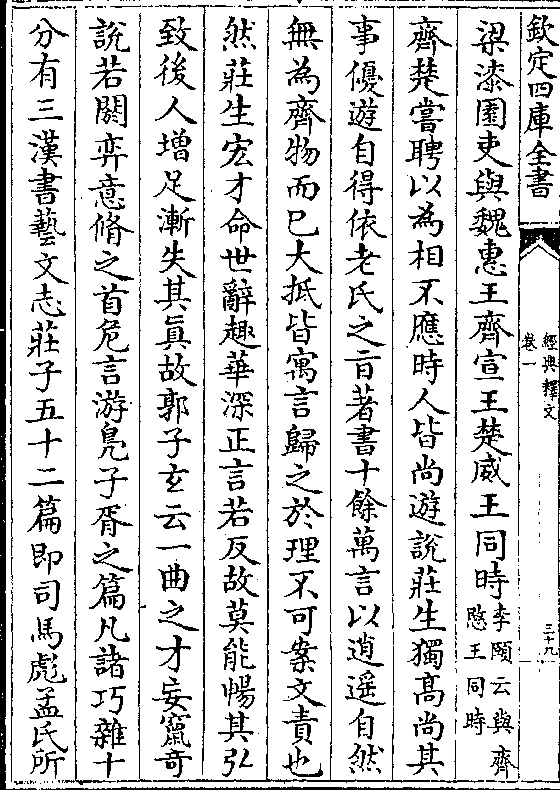 欽定四庫全書
經典釋文
卷一
三十九
梁漆園吏與魏惠王齊宣王楚威王同時李頤云與齊愍王同時
齊楚嘗聘以為相不應時人皆尚遊說莊生獨高尚其
事優遊自得依老氏之旨著書十餘萬言以逍遥自然
無為齊物而已大抵皆寓言歸之於理不可案文責也
然莊生宏才命世辭趣華深正言若反故莫能暢其弘
致後人增足漸失其真故郭子玄云一曲之才妄竄竒
說若閼弈意脩之首危言游鳧子胥之篇凡諸巧雜十
分有三漢書藝文志莊子五十二篇即司馬彪孟氏所